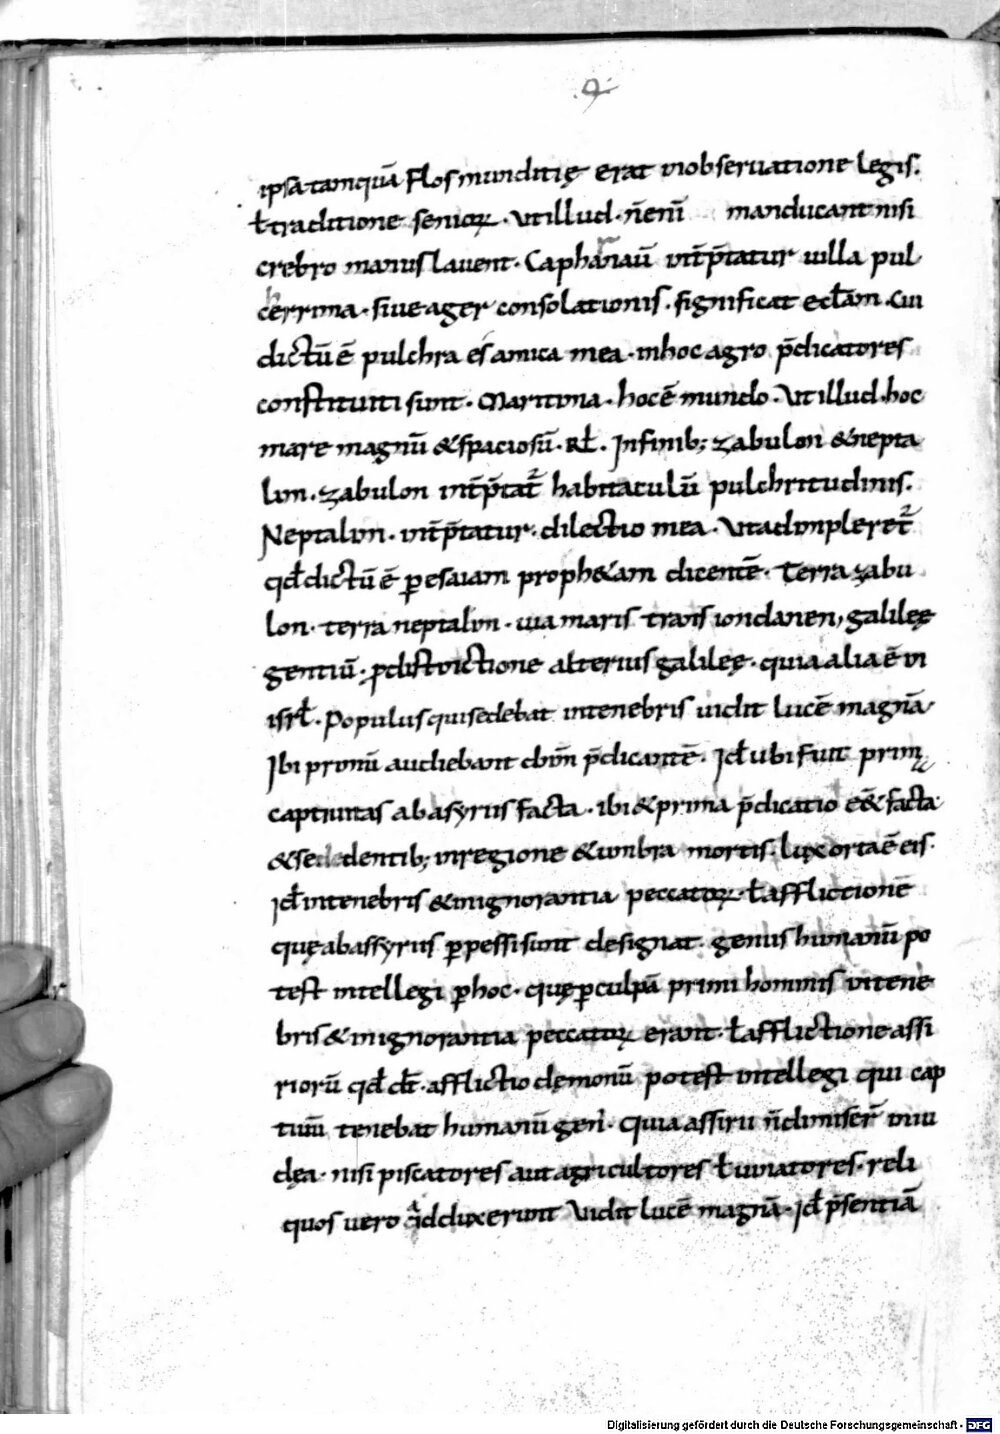 9
ipsa tamquā flos munditię erat inobseruatione legis.
ł traditione senioꝝ. Vt illud. n̄ enī manducant nisi
crebro manus lauent. Caphanaū int̄p̄tatur uilla pul
cerrima. siue ager consolationis. significat eclām. Cui
dictū ē pulchra es amica mea. inhoc agro p̄dicatores
constituti sunt. Maritima. hoc ē mundo. Vt illud. hoc
mare magnū & spaciosū. Rł. Infinib; zabulon & nepta
lim. zabulon int̄p̄tat᷑ habitaculū pulchritudinis.
Neptalim. int̄p̄tatur. dilectio mea. Vt adimpleret᷑
qđ dictū ē ꝑ esaiam proph&am dicentē. Terra zabu
lon. terra neptalim. uia maris trans iordanen, galileę
gentiū. ꝓ distinctione alterius galileę. quia alia ē in
isrł. Populus qui sedebat intenebris uidit lucē magnā
Ibi primū audiebant dn̄m p̄dicantē. Iđ ubi fuit prim
captiuitas ab asyriis facta. ibi & prima p̄dicatio ē & facta
& sededentib; inregione & umbra mortis. lux orta ē eis.
Iđ intenebris & inignorantia peccatoꝝ. ł afflictionē
quę ab assyriis ꝑpessi sunt designat. genus humanū po
test intellegi ꝑ hoc. quę ꝑ culpā primi hominis intene
bris & inignorantia peccatoꝝ erant. ł afflictione assi
riorū qđ dt̄. afflictio demonū potest intellegi qui cap
tiuū tenebat humanū gen̄. Quia assirii n̄ dimiser̄ iniu
dea. nisi piscatores aut agricultores ł uinatores. reli
quos uero q̇d duxerunt Vidit lucē magnā. Iđ p̄sentiā
Digitalisierung gefördert durch die Deutsche Forschungsgemeinschaft - DFG